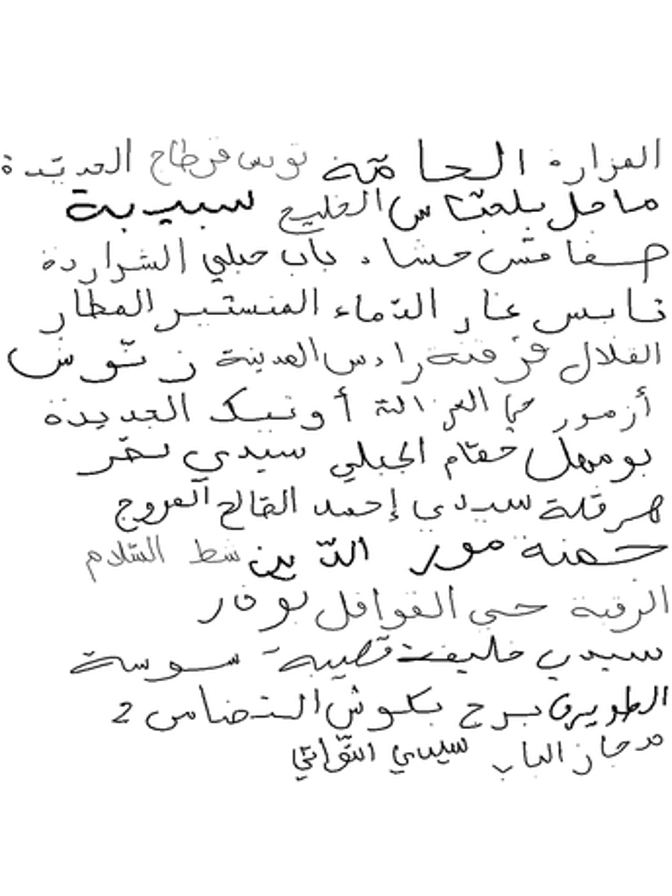 المزارة الحامة تونس قرطاج الجديدة
ماطل بلخياس الخليج سبيبة
صفاقس حشاد باب جبلي الشراردة
تابس غار الدماء المنستير المطار
القلال قرقنة رادس المدينة ز نوش
أزمور الغزالة أوتيك الجديدة
بومهل حمّام الجبلي سيدي نصر
هرقلة سيدي إحمد الصّالح العروج
حسنة نور الدّين شط السّلام
الرقبة حي القوافل بوفار
سيدي خليفة قصيبة سوسة
الطويرف برج بكوش التضامن 2
مجاز الباب سيدي التواتي